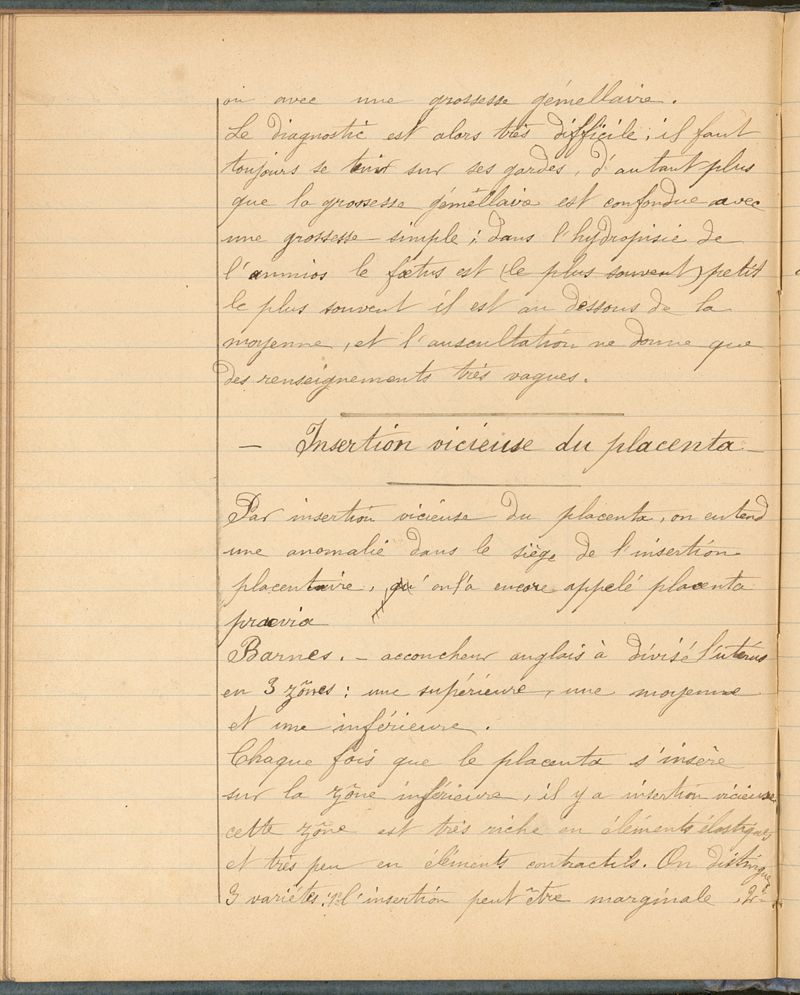 ou avec une grossesse gémellaire.
Le diagnostic est alors très difficile ; il faut
toujours se tenir sur ses gardes, d'autant plus
que la grossesse gémellaire est confondue avec
une grossesse simple ; dans l'hydropisie de
l'amnios le fœtus est (le plus souvent) petit
le plus souvent il est au dessous de la
moyenne, et l'auscultation ne donne que
des renseignements très vagues.
— Insertion vicieuse du placenta —
Par insertion vicieuse du placenta, on entend
une anomalie dans le siège de l'insertion
placentaire, qu'on l'a encore appelé placenta
prœvia
Barnes. — accoucheur anglais à divisé l'utérus
en 3 zônes : une supérieure, une moyenne
et une inférieure.
Chaque fois que le placenta s'insère
sur la zône inférieure, il y a insertion vicieuse,
cette zône est très riche en éléments élastiques
et très peu en éléments contractils. On distingue
3 variétés : 1º l'insertion peut être marginale, 2º